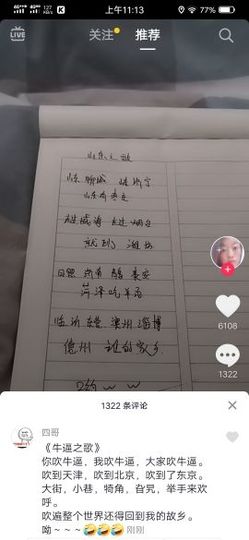 上午11:13
77%
LIVE
关注
推荐
山东之歌
山东 聊城 挂济宁
山东有枣庄
胜威海 赶烟台
就到 潍坊
日照 青岛 莱芜 泰安
菏泽吃羊肉
临沂 东营 滨州 淄博
德州 谁的家乡
6108
1322
1322 条评论
四哥
《牛逼之歌》
你吹牛逼，我吹牛逼，大家吹牛逼。
吹到天津，吹到北京，吹到了东京。
大街，小巷，犄角，旮旯，举手来欢
呼。
吹遍整个世界还得回到我的故乡。
呦～～～🤣🤣🤣 刚刚